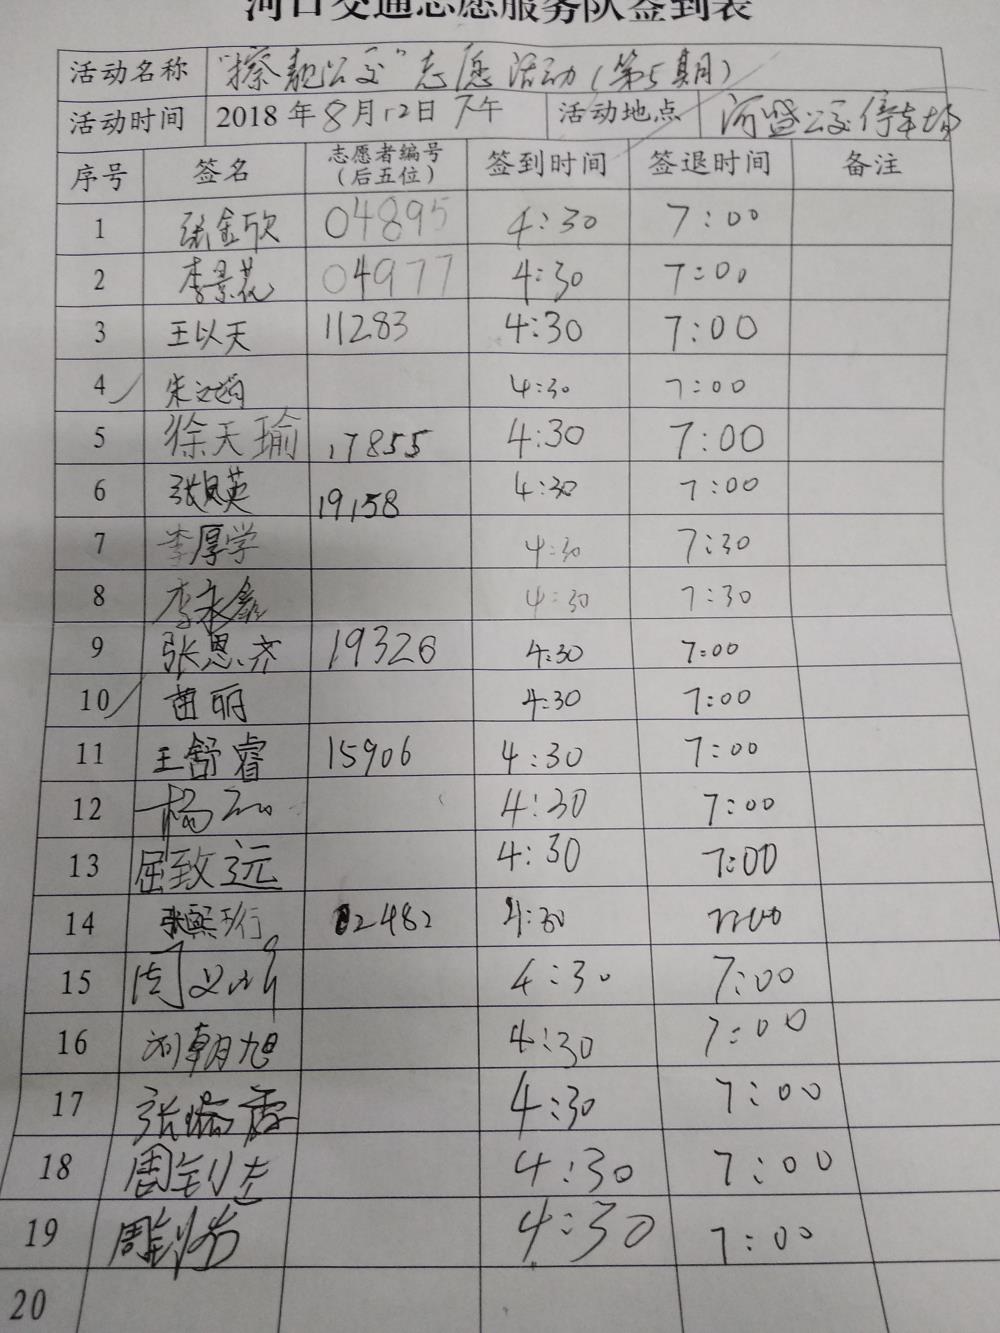 河口交通志愿服务队签到表
活动名称 "擦靓公交"志愿活动(第5期)
活动时间 2018年8月12日下午 活动地点 河盛公交停车场
序号 签名 志愿者编号(后五位) 签到时间 签退时间 备注
1 张金欣 04895 4:30 7:00
2 李景花 04977 4:30 7:00
3 王以天 11283 4:30 7:00
4 朱文娟 4:30 7:00
5 徐天瑜 17855 4:30 7:00
6 张凤英 19158 4:30 7:00
7 李厚学 4:30 7:30
8 李永鑫 4:30 7:30
9 张思齐 19326 4:30 7:00
10 苗丽 4:30 7:00
11 王舒睿 15906 4:30 7:00
12 杨 4:30 7:00
13 屈致远 4:30 7:00
14 张熙珩 02482 4:30 7:00
15 4:30 7:00
16 刘朝旭 4:30 7:00
17 张瑞霞 4:30 7:00
18 周钊 4:30 7:00
19 周 4:30 7:00
20